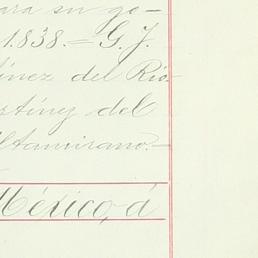 ara su go-
1.838.= G. J.
tínez del Río
stíny del
ltamirano.-
México, á